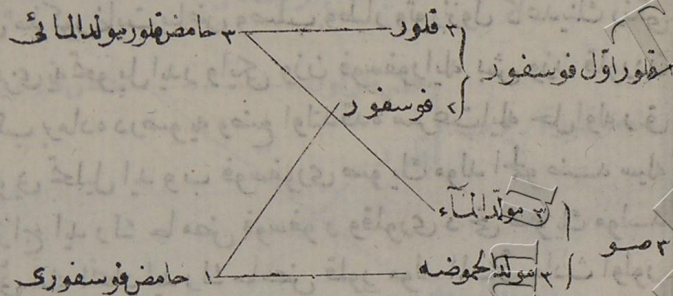 ٣ قلور ٣ حامض قلور مولد المائى
قلور اوّل فوسفور
٢ فوسفور
٣ مولّد المآء
٣ صو
٣ مولد الحموضه ١ حامض فوسفورى